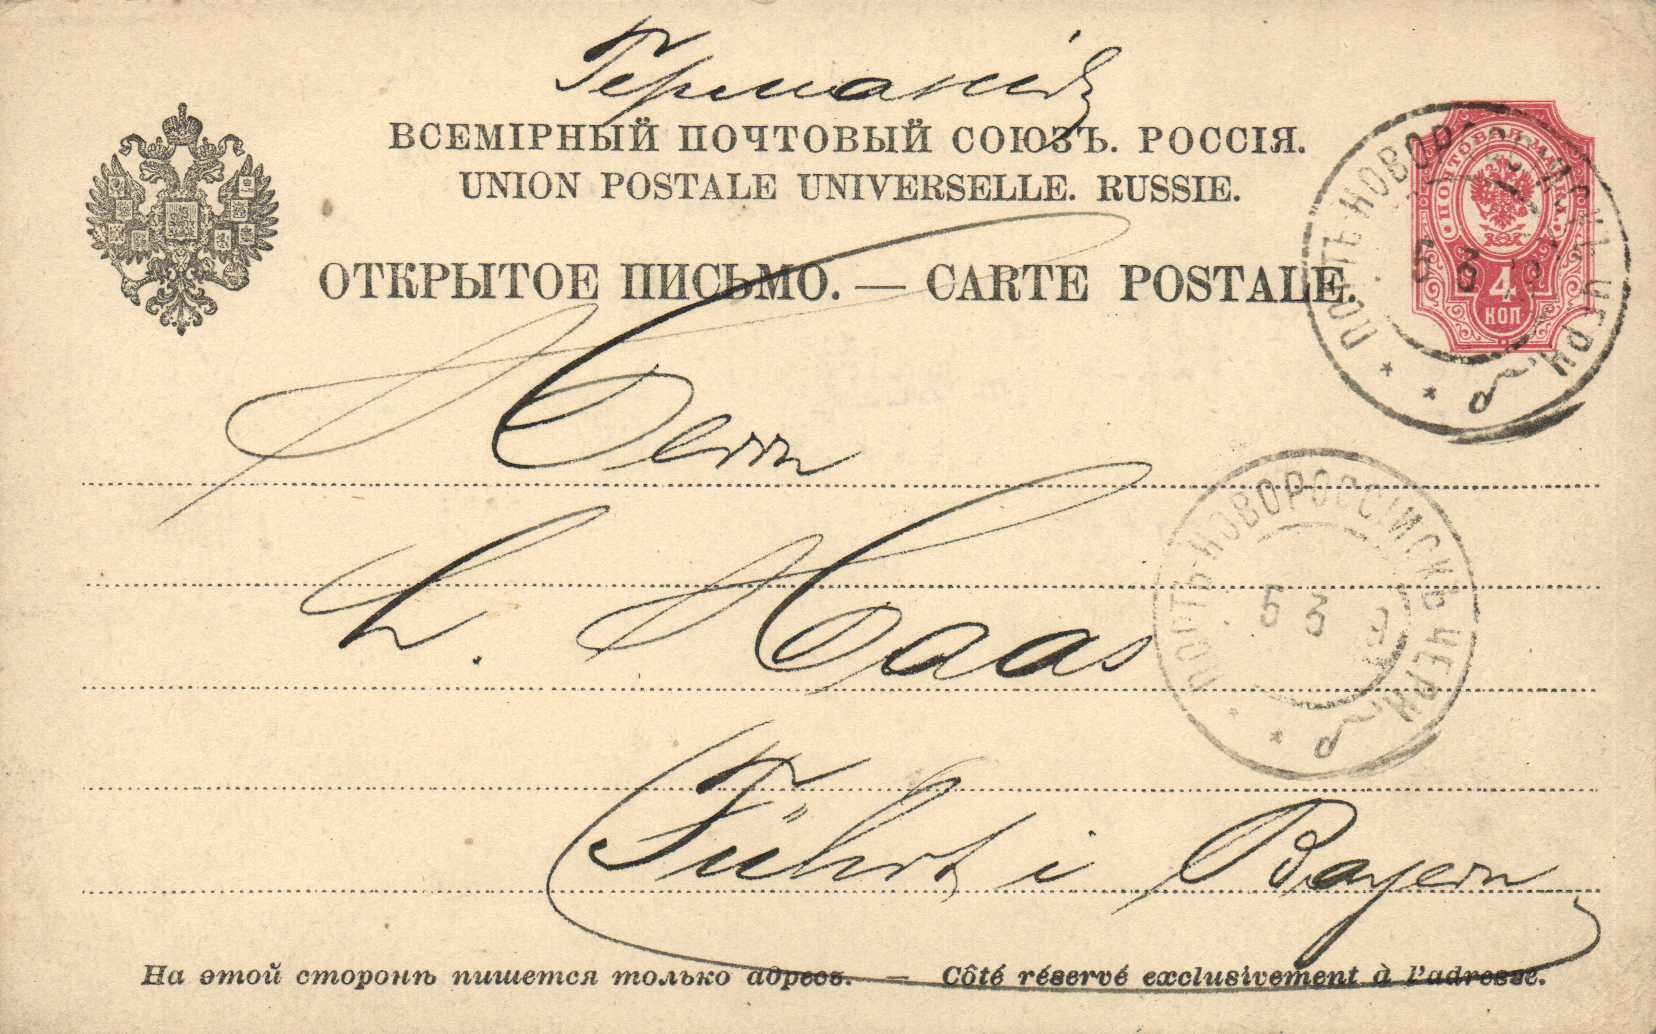 Германія
ВСЕМІРНЫЙ ПОЧТОВЫЙ СОЮЗЪ. РОССІЯ.
UNION POSTALE UNIVERSELLE. RUSSIE.
ОТКРЫТОЕ ПИСЬМО. — CARTE POSTALE.
ПОЧТОВАЯ МАРКА
4
КОП
ПОРТЪ-НОВОРОССІЙСКЪ ЧЕРН.
5 3
Herrn
L. Haas
ПОРТЪ-НОВОРОССІЙСКЪ ЧЕРН.
5 3 9
Fürth i Bayern
На этой сторонѣ пишется только адресъ. — Côté réservé exclusivement à l'adresse.